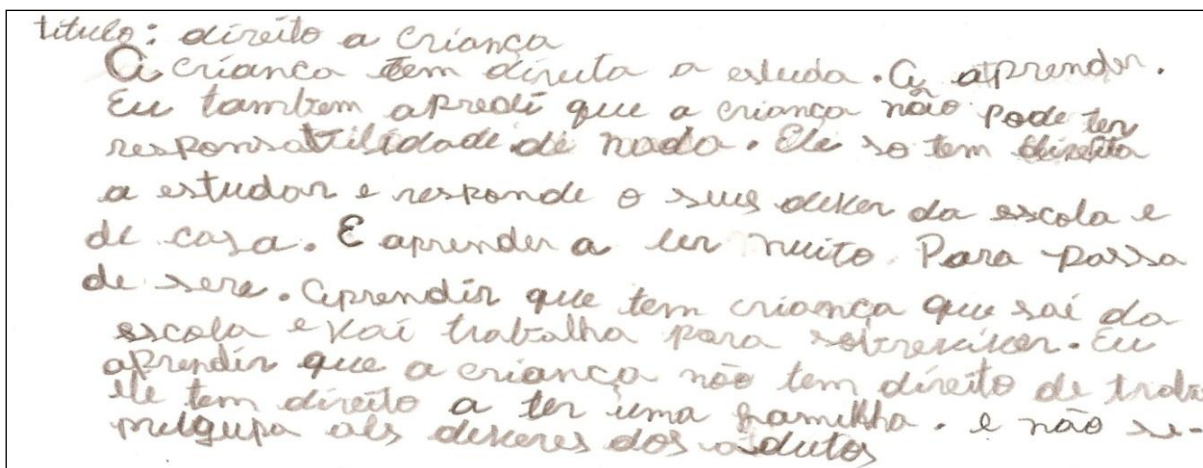 titulo: direito a criança
A crianca tem direita a estuda. A aprender.
Eu tambem apredi que a criança não pode ter
responsabilidade de nada. Ele so tem direita
a estudar e responde o seus dever da escola e
de casa. E aprender a ler muito. Para passa
de sere. Aprendir que tem criança que sai da
escola e vai trabalha para sobreviver. Eu
aprendir que a criança não tem direito de traba
ele tem direito a ter uma familha. e não se-
als deveres dos adutos